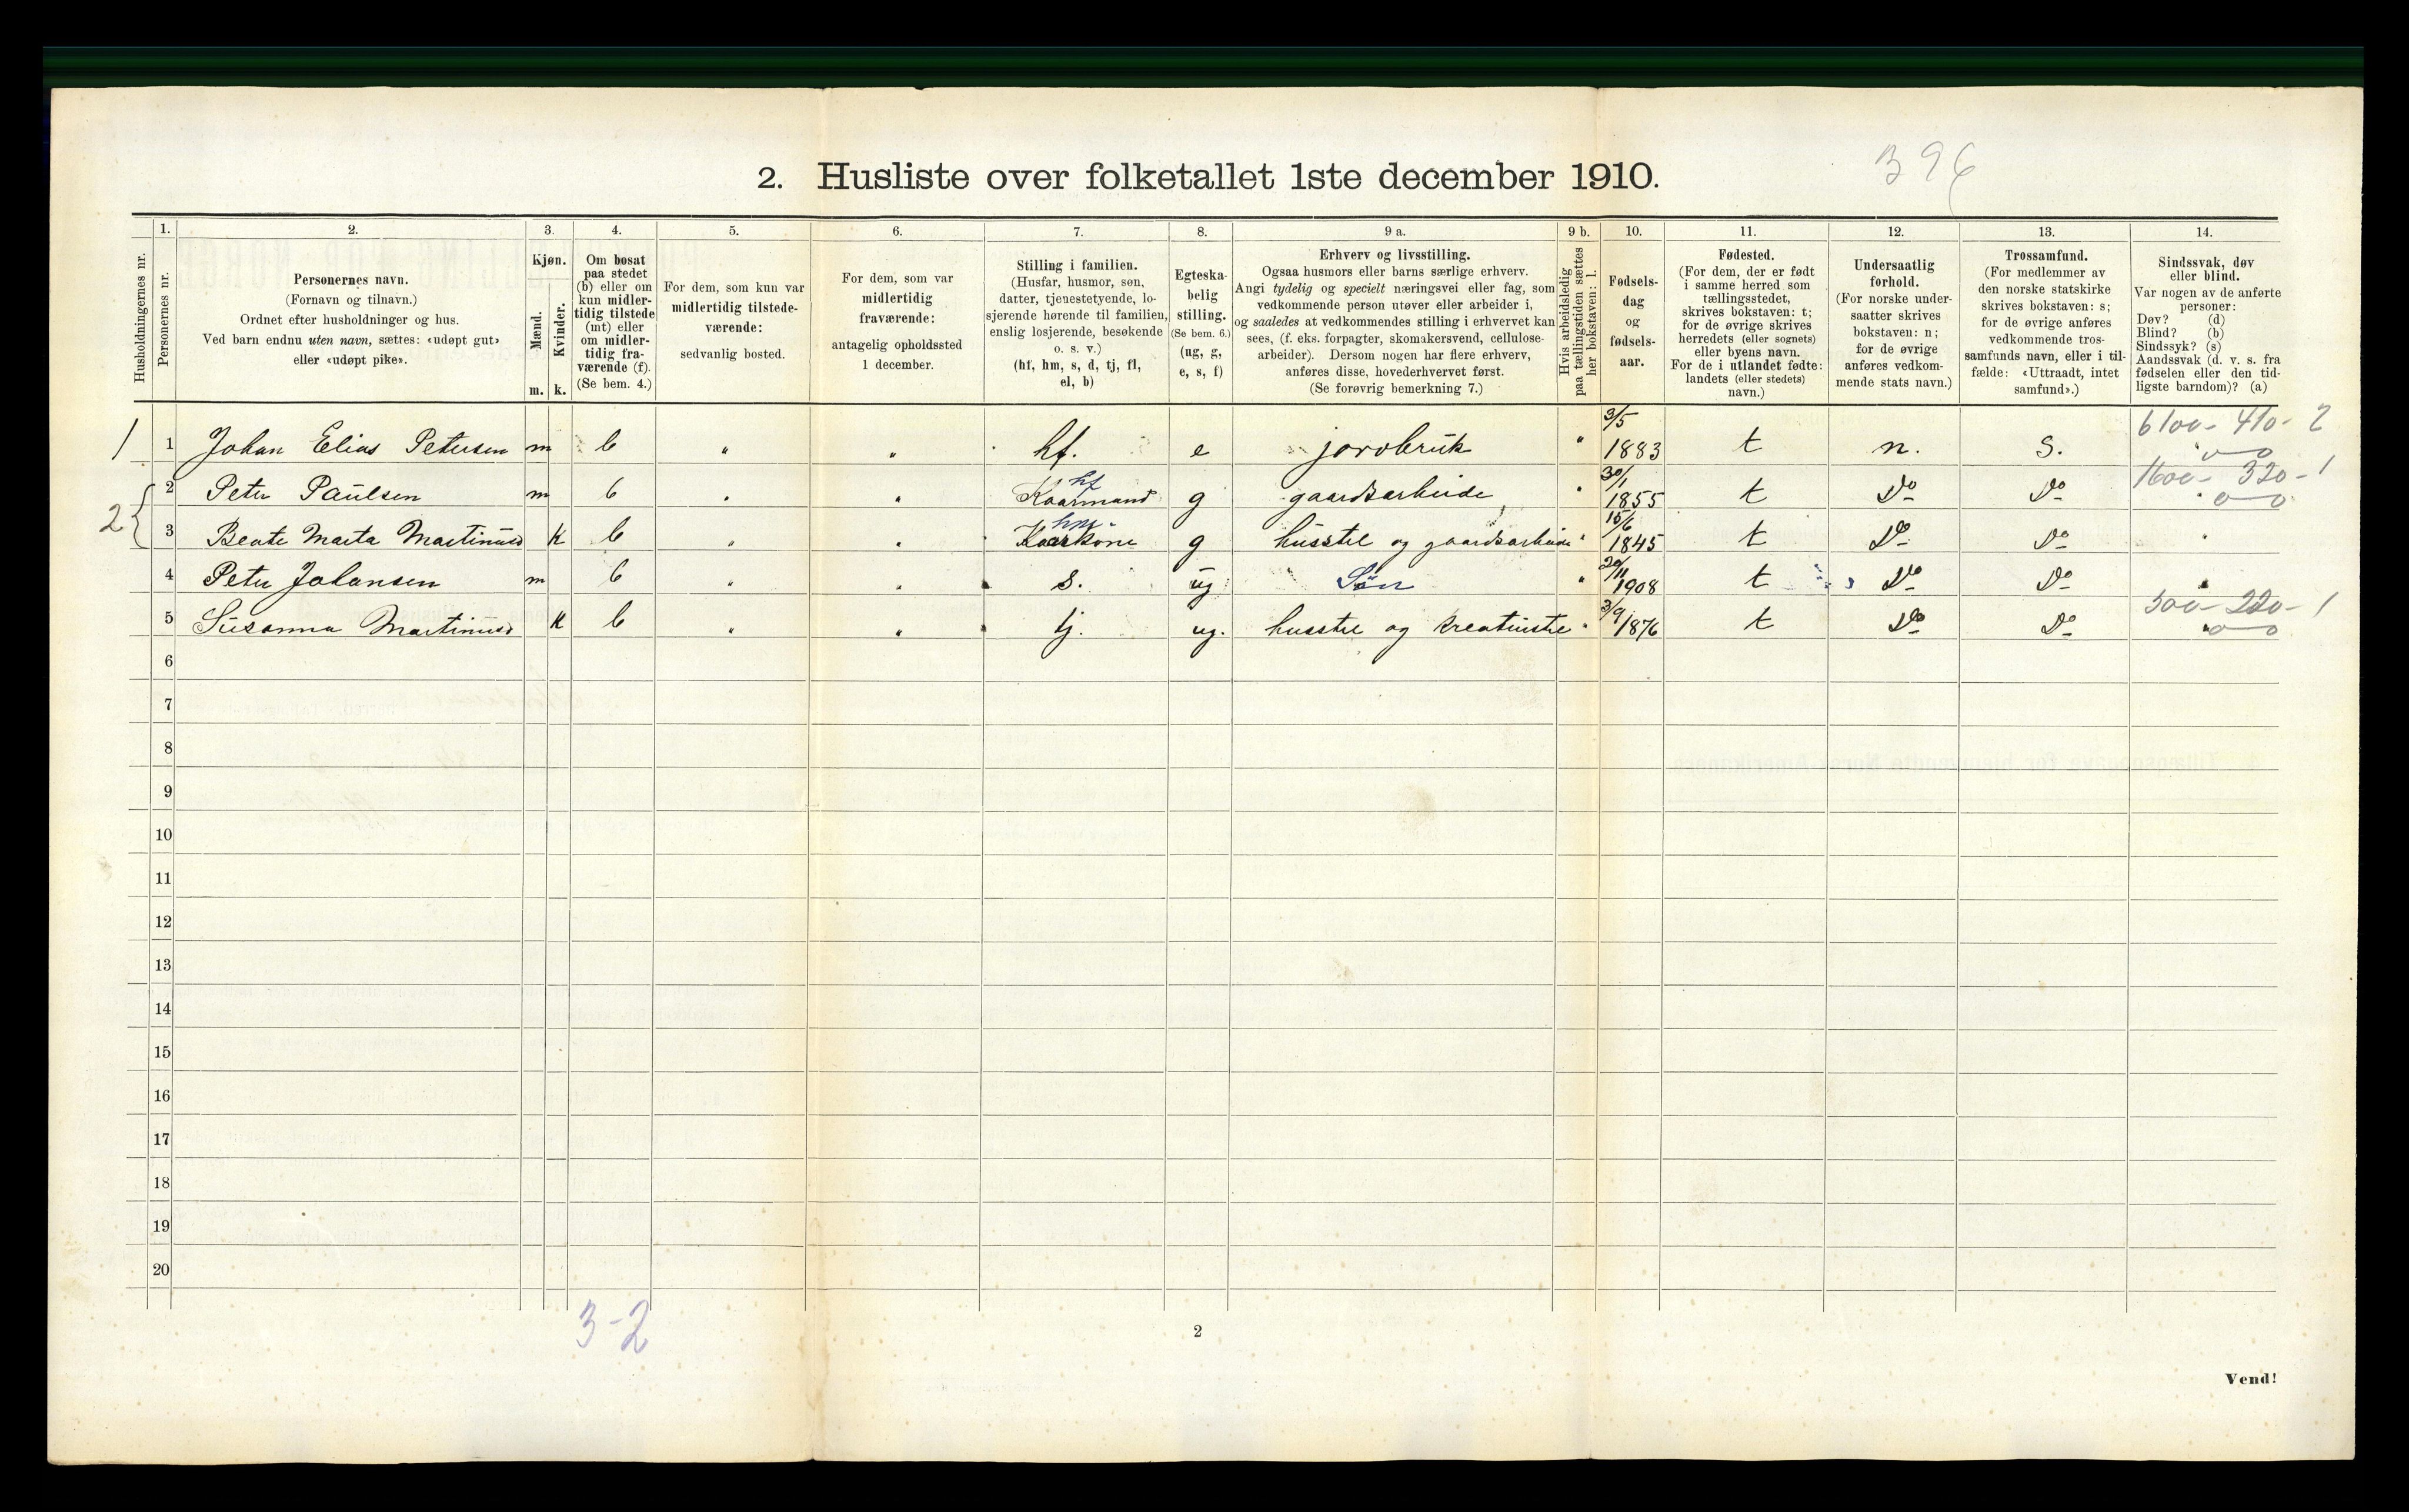 2. Husliste over folketallet 1ste december 1910.
396
Husholdningernes nr.
1. Personernes nr.
2. Personernes navn. (Fornavn og tilnavn.) Ordnet efter husholdninger og hus. Ved barn endnu uten navn, sættes: «udøpt gut» eller «udøpt pike».
3. Kjøn. Mænd. m. Kvinder. k.
4. Om bosat paa stedet (b) eller om kun midlertidig tilstede (mt) eller om midlertidig fraværende (f). (Se bem. 4.)
5. For dem, som kun var midlertidig tilstedeværende: sedvanlig bosted.
6. For dem, som var midlertidig fraværende: antagelig opholdssted 1 december.
7. Stilling i familien. (Husfar, husmor, søn, datter, tjenestetyende, losjerende hørende til familien, enslig losjerende, besøkende o. s. v.) (hf, hm, s, d, tj, fl, el, b)
8. Egteskabelig stilling. (Se bem. 6.) (ug, g, e, s, f)
9 a. Erhverv og livsstilling. Ogsaa husmors eller barns særlige erhverv. Angi tydelig og specielt næringsvei eller fag, som vedkommende person utøver eller arbeider i, og saaledes at vedkommendes stilling i erhvervet kan sees, (f. eks. forpagter, skomakersvend, cellulosearbeider). Dersom nogen har flere erhverv, anføres disse, hovederhvervet først. (Se forøvrig bemerkning 7.)
9 b. Hvis arbeidsledig paa tællingstiden sættes her bokstaven: l.
10. Fødselsdag og fødselsaar.
11. Fødested. (For dem, der er født i samme herred som tællingsstedet, skrives bokstaven: t; for de øvrige skrives herredets (eller sognets) eller byens navn. For de i utlandet fødte: landets (eller stedets) navn.)
12. Undersaatlig forhold. (For norske undersaatter skrives bokstaven: n; for de øvrige anføres vedkommende stats navn.)
13. Trossamfund. (For medlemmer av den norske statskirke skrives bokstaven: s; for de øvrige anføres vedkommende trossamfunds navn, eller i tilfælde: «Uttraadt, intet samfund».)
14. Sindssvak, døv eller blind. Var nogen av de anførte personer: Døv? (d) Blind? (b) Sindssyk? (s) Aandssvak (d. v. s. fra fødselen eller den tidligste barndom)? (a)
1 1 Johan Elias Petersen m b " " hf. e jordbruk " 3/5 1883 t n. s. 6100- 410- 2
2 2 Peter Paulsen m b " " Kaarmand hf g gaardsarbeide " 30/1 1855 t Do Do 1600- 320- 1
3 Beate Marta Martinusd k b " " Kaarkone hm g husstel og gaardsarbeide " 15/6 1845 t Do Do "
4 Peter Johansen m b " " s. ug Søn " 20/11 1908 t Do Do "
5 Susanna Martinusd k b " " tj. ug. husstel og kreaturstel " 3/9 1876 t Do Do 500- 220- 1
6
7
8
9
10
11
12
13
14
15
16
17
18
19
20
3-2
2
Vend!